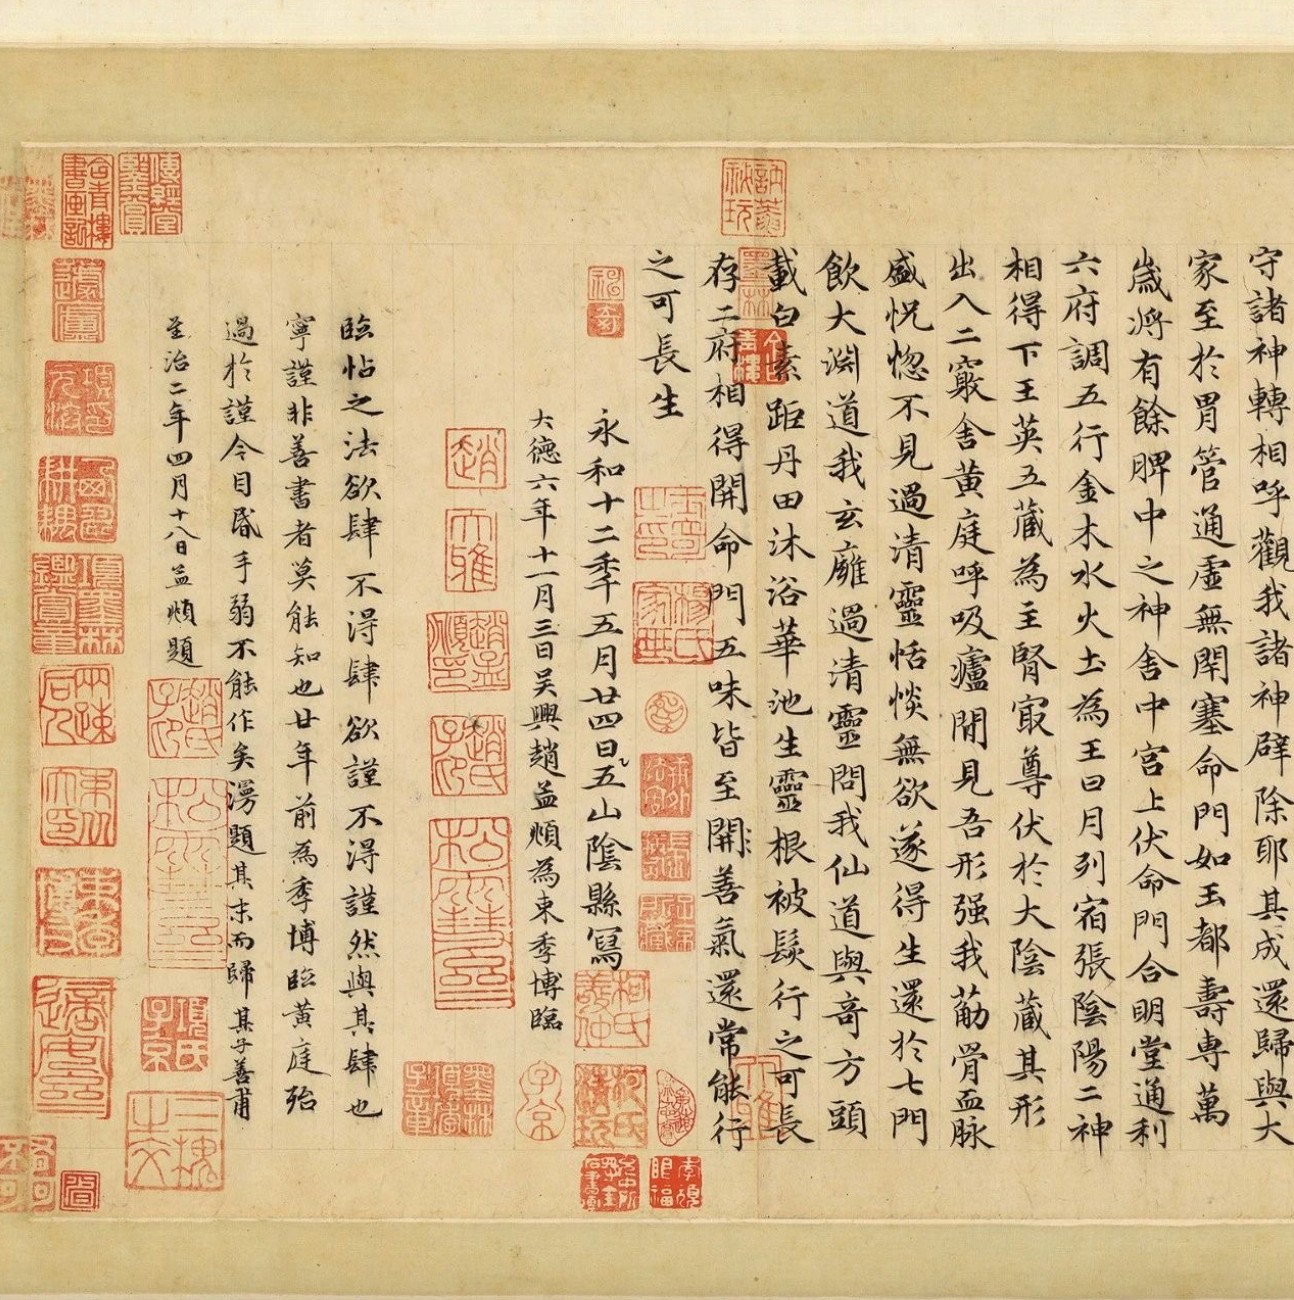 守諸神轉相呼觀我諸神辟除耶其成還歸與大
家至於胃管通虛無閇塞命門如玉都壽專萬
歲將有餘脾中之神舍中宮上伏命門合明堂通利
六府調五行金木水火土為王日月列宿張陰陽二神
相得下玉英五藏為主腎㝡尊伏於大陰藏其形
出入二竅舍黃庭呼吸廬閒見吾形强我葪骨血脉
盛怳惚不見過清靈恬惔無欲遂得生還於七門
飲大渊道我玄廱過清靈問我仙道與奇方頭
載白素距丹田沐浴華池生靈根被髮行之可長
存二府相得開命門五味皆至開善氣還常能行
之可長生
永和十二秊五月廿四日五山陰縣寫
大德六年十一月三日吳興趙孟頫為東季博臨
臨帖之法欲肆不淂肆欲謹不淂謹然與其肆也
寧謹非善書者莫能知也廿年前為季博臨黃庭殆
過於謹今目昏手弱不能作矣漫題其末而歸其子善甫
至治二年四月十八日孟頫題
趙
大雅
趙孟頫印
趙氏子昂
松雪齋印
趙氏子昂
松雪齋印
項氏子京
子京